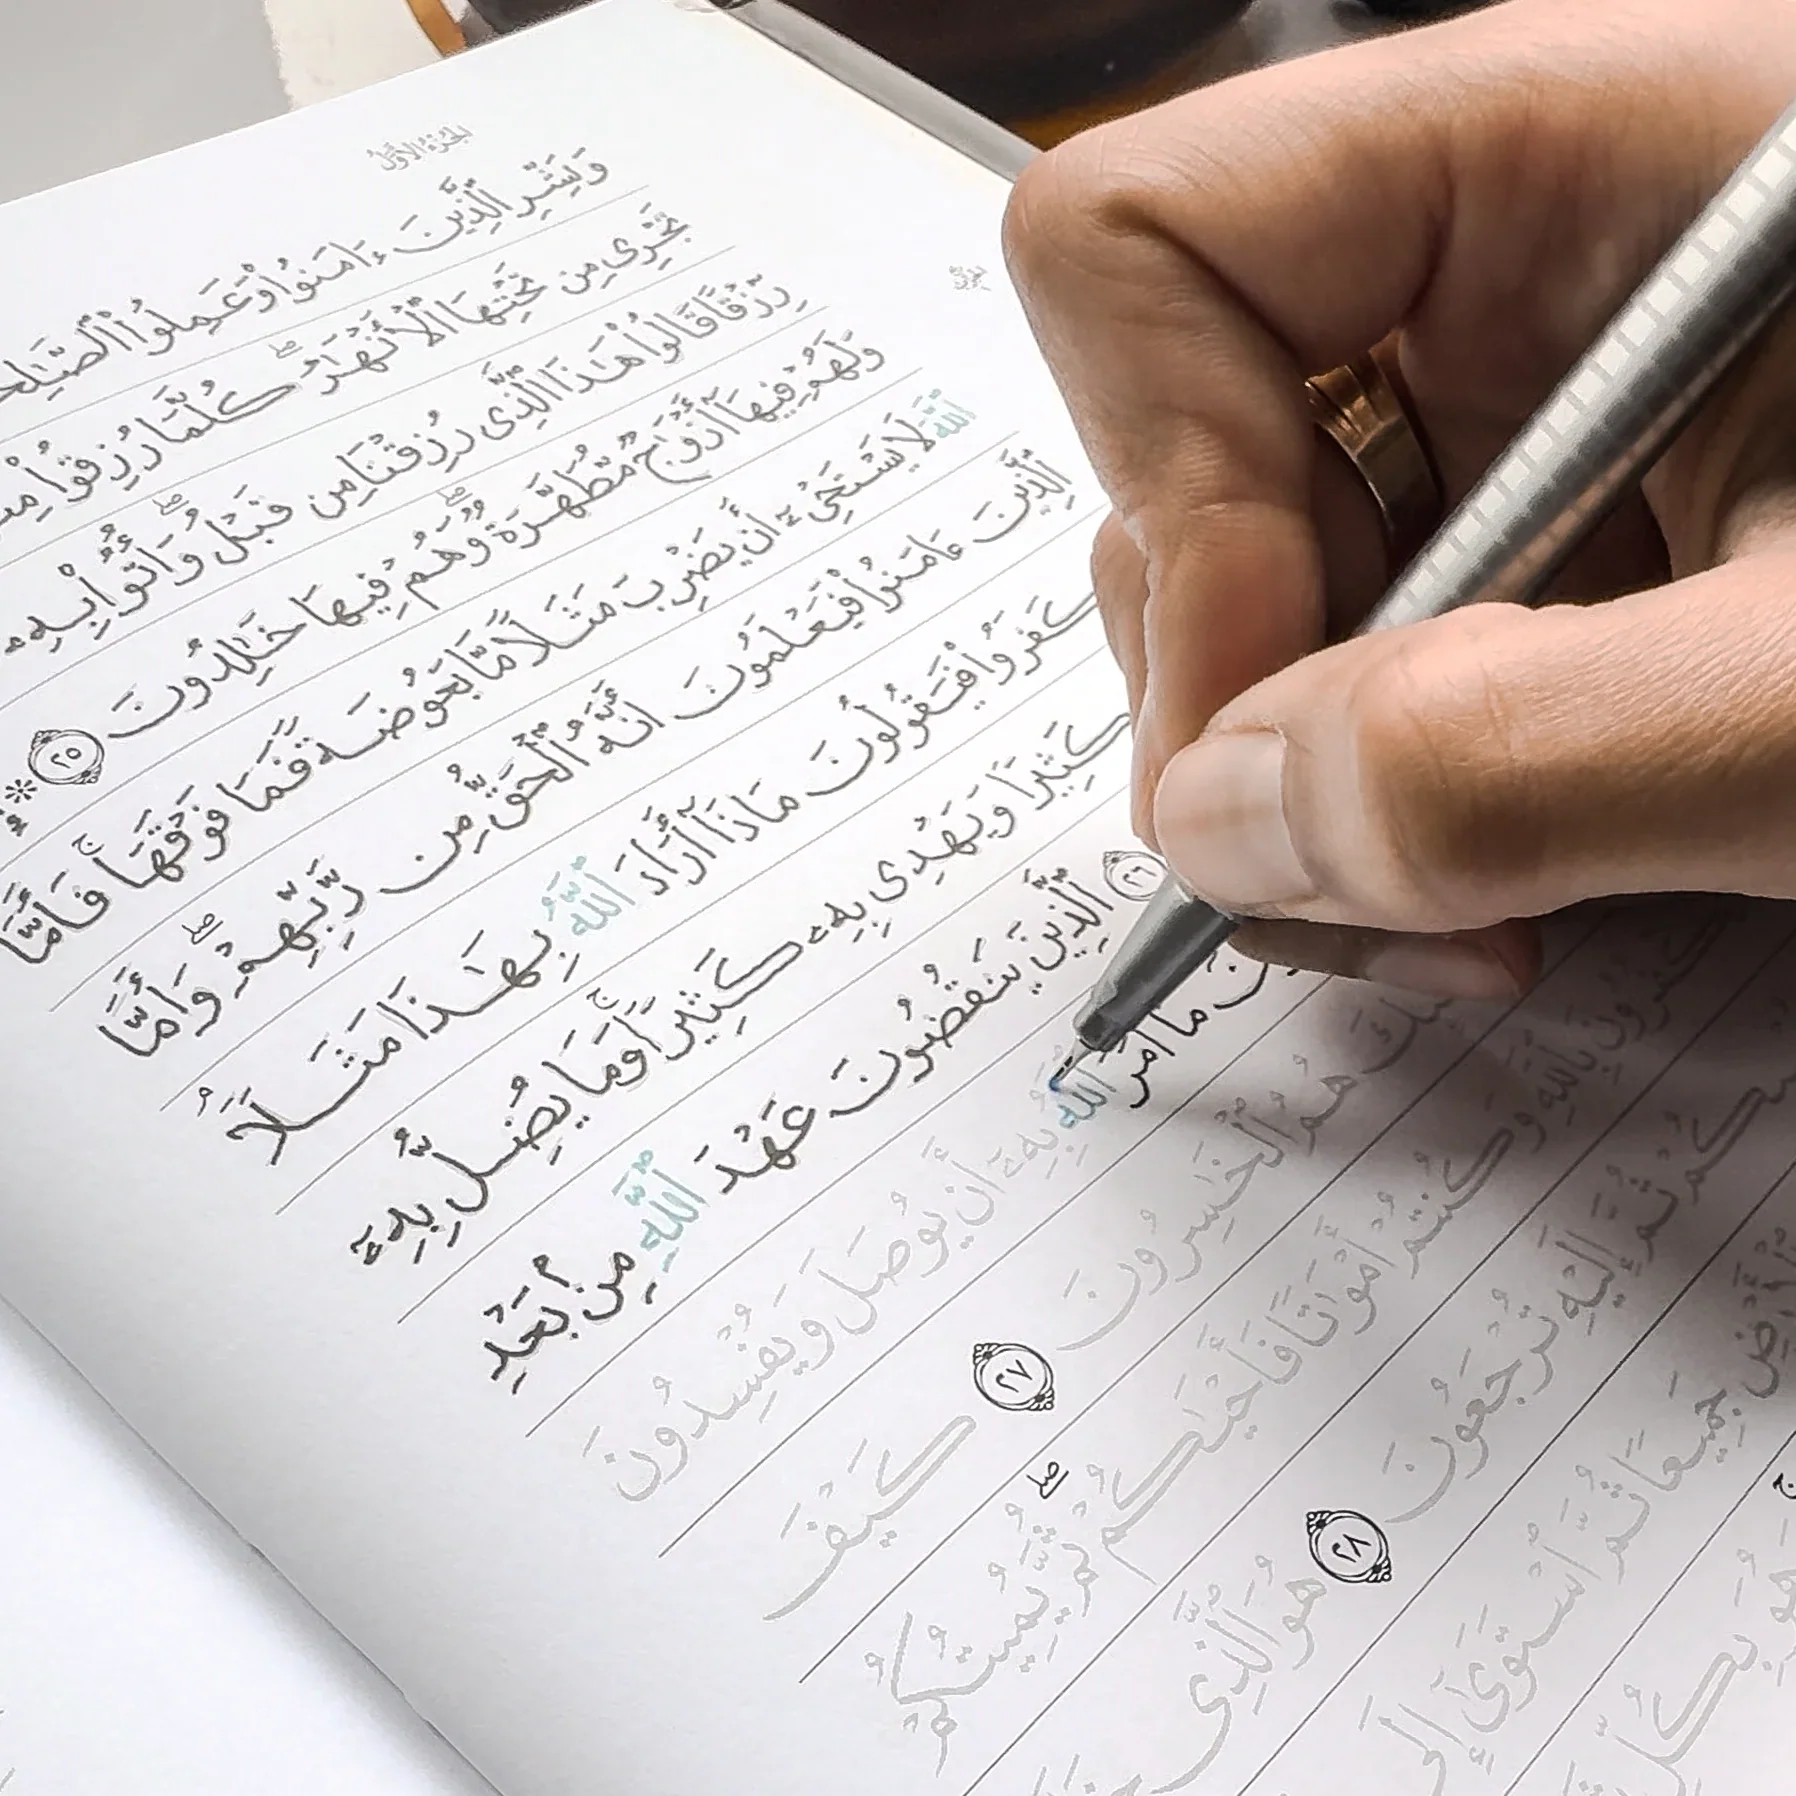 الجزء الأول
وَبَشِّرِ ٱلَّذِينَ ءَامَنُوا۟ وَعَمِلُوا۟
تَجْرِى مِن تَحْتِهَا ٱلْأَنْهَـٰرُ ۖ كُلَّمَا رُزِقُوا۟
رِّزْقًا قَالُوا۟ هَـٰذَا ٱلَّذِى رُزِقْنَا مِن قَبْلُ ۖ وَأُتُوا۟ بِهِۦ
وَلَهُمْ فِيهَآ أَزْوَٰجٌ مُّطَهَّرَةٌ ۖ وَهُمْ فِيهَا خَـٰلِدُونَ ٢٥
ٱللَّهَ لَا يَسْتَحْىِۦٓ أَن يَضْرِبَ مَثَلًا مَّا بَعُوضَةً فَمَا فَوْقَهَا ۚ فَأَمَّا
ٱلَّذِينَ ءَامَنُوا۟ فَيَعْلَمُونَ أَنَّهُ ٱلْحَقُّ مِن رَّبِّهِمْ ۖ وَأَمَّا
كَفَرُوا۟ فَيَقُولُونَ مَاذَآ أَرَادَ ٱللَّهُ بِهَـٰذَا مَثَلًا ۘ
كَثِيرًا وَيَهْدِى بِهِۦ كَثِيرًا ۚ وَمَا يُضِلُّ بِهِۦٓ
٢٦ ٱلَّذِينَ يَنقُضُونَ عَهْدَ ٱللَّهِ مِنۢ بَعْدِ
مَآ أَمَرَ ٱللَّهُ بِهِۦٓ أَن يُوصَلَ وَيُفْسِدُونَ
هُمُ ٱلْخَـٰسِرُونَ ٢٧ كَيْفَ
تَكْفُرُونَ بِٱللَّهِ وَكُنتُمْ أَمْوَٰتًا فَأَحْيَـٰكُمْ ۖ ثُمَّ يُمِيتُكُمْ
ثُمَّ إِلَيْهِ تُرْجَعُونَ ٢٨ هُوَ ٱلَّذِى
جَمِيعًا ثُمَّ ٱسْتَوَىٰٓ إِلَى
وَهُوَ بِكُلِّ